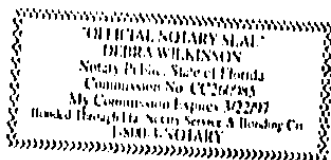 "OFFICIAL NOTARY SEAL"
DEBRA WILKINSON
Notary Public, State of Florida
Commission No. CC260985
My Commission Expires 3/22/97
Bonded Through Fla. Notary Service & Bonding Co.
1-800-3-NOTARY